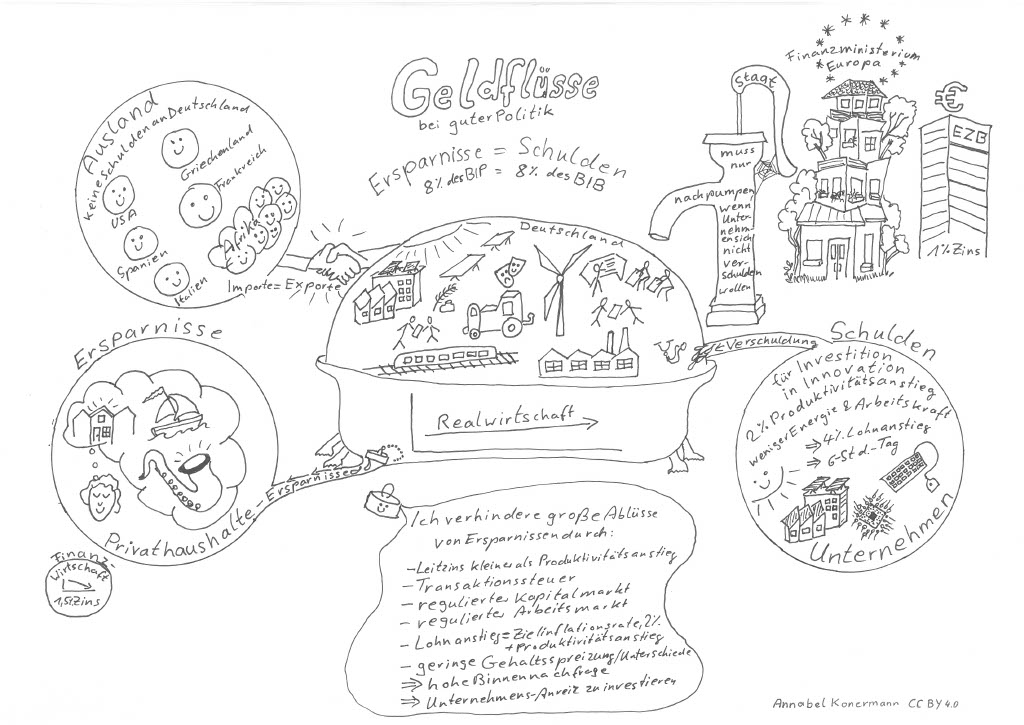 Geldflüsse
bei guter Politik
Ersparnisse = Schulden
8% des BIP = 8% des BIB
Ausland
keine Schulden an Deutschland
Griechenland
Frankreich
USA
Afrika
Spanien
Italien
Importe = Exporte
Deutschland
Staat
muss
nur
nachpumpen,
wenn
Unter-
nehm-
en sich
nicht
ver-
schulden
wollen
Finanzministerium
Europa
€
EZB
1% Zins
Ersparnisse
Privathaushalte
←Ersparnisse
Finanz-
Wirtschaft
1,5% Zins
Realwirtschaft
←Verschuldung
Schulden
für Investition
in Innovation
2% Produktivitätsanstieg
weniger Energie & Arbeitskraft
⇒ 4% Lohnanstieg
⇒ 6-Std.-Tag
Unternehmen
Ich verhindere große Ablüsse
von Ersparnissen durch:
- Leitzins kleiner als Produktivitätsanstieg
- Transaktionssteuer
- regulierter Kapitalmarkt
- regulierter Arbeitsmarkt
- Lohnanstieg = Zielinflationsrate, 2%
+ Produktivitätsanstieg
- geringe Gehaltsspreizung/Unterschiede
⇒ hohe Binnennachfrage
⇒ Unternehmens-Anreiz zu investieren
Annabel Konermann CC BY 4.0